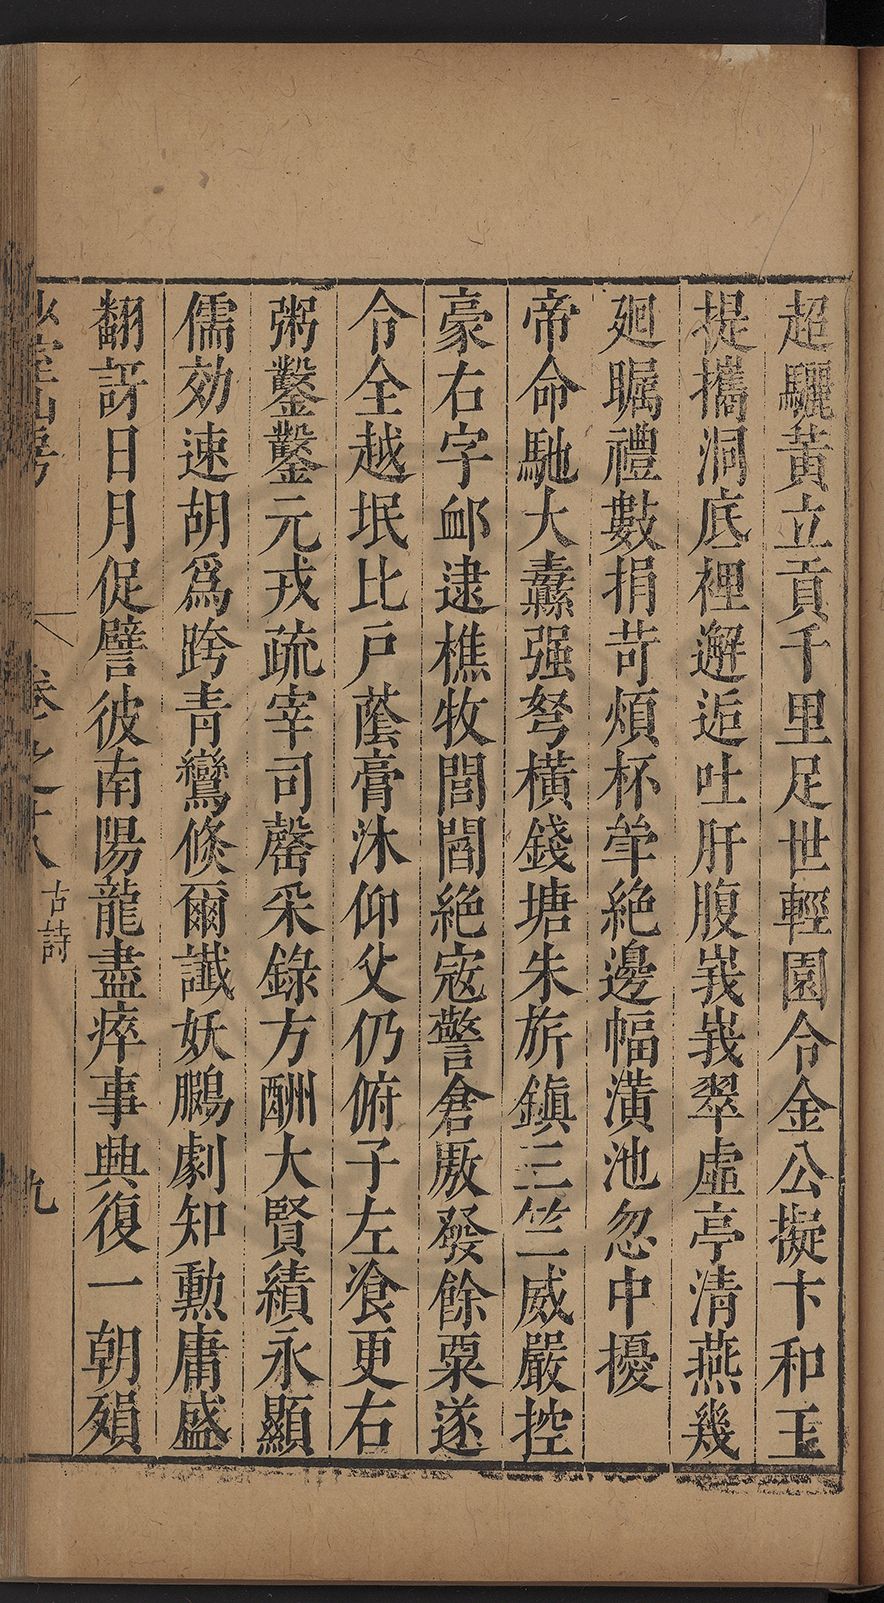 超驪黃立貢千里足世輕園令金公擬卞和玉
提攜洞底裡邂逅吐肝腹峩峩翠虛亭清燕幾
廻矚禮數捐苛煩杯斚絶邊幅潢池忽中擾
帝命馳大纛强弩橫錢塘朱旂鎮三竺威嚴控
豪右字䘏逮樵牧閭閻絶寇警倉厫發餘粟遂
令全越坻比戶蔭膏沐仰父仍俯子左飡更右
粥鑿鑿元戎疏宰司罄采錄方酬大賢績永顯
儒効速胡爲跨青鸞倐爾讖妖鵩劇知勲庸盛
翻訝日月促譬彼南陽龍盡瘁事興復一朝殞
少室山房 卷之十八 古詩 九